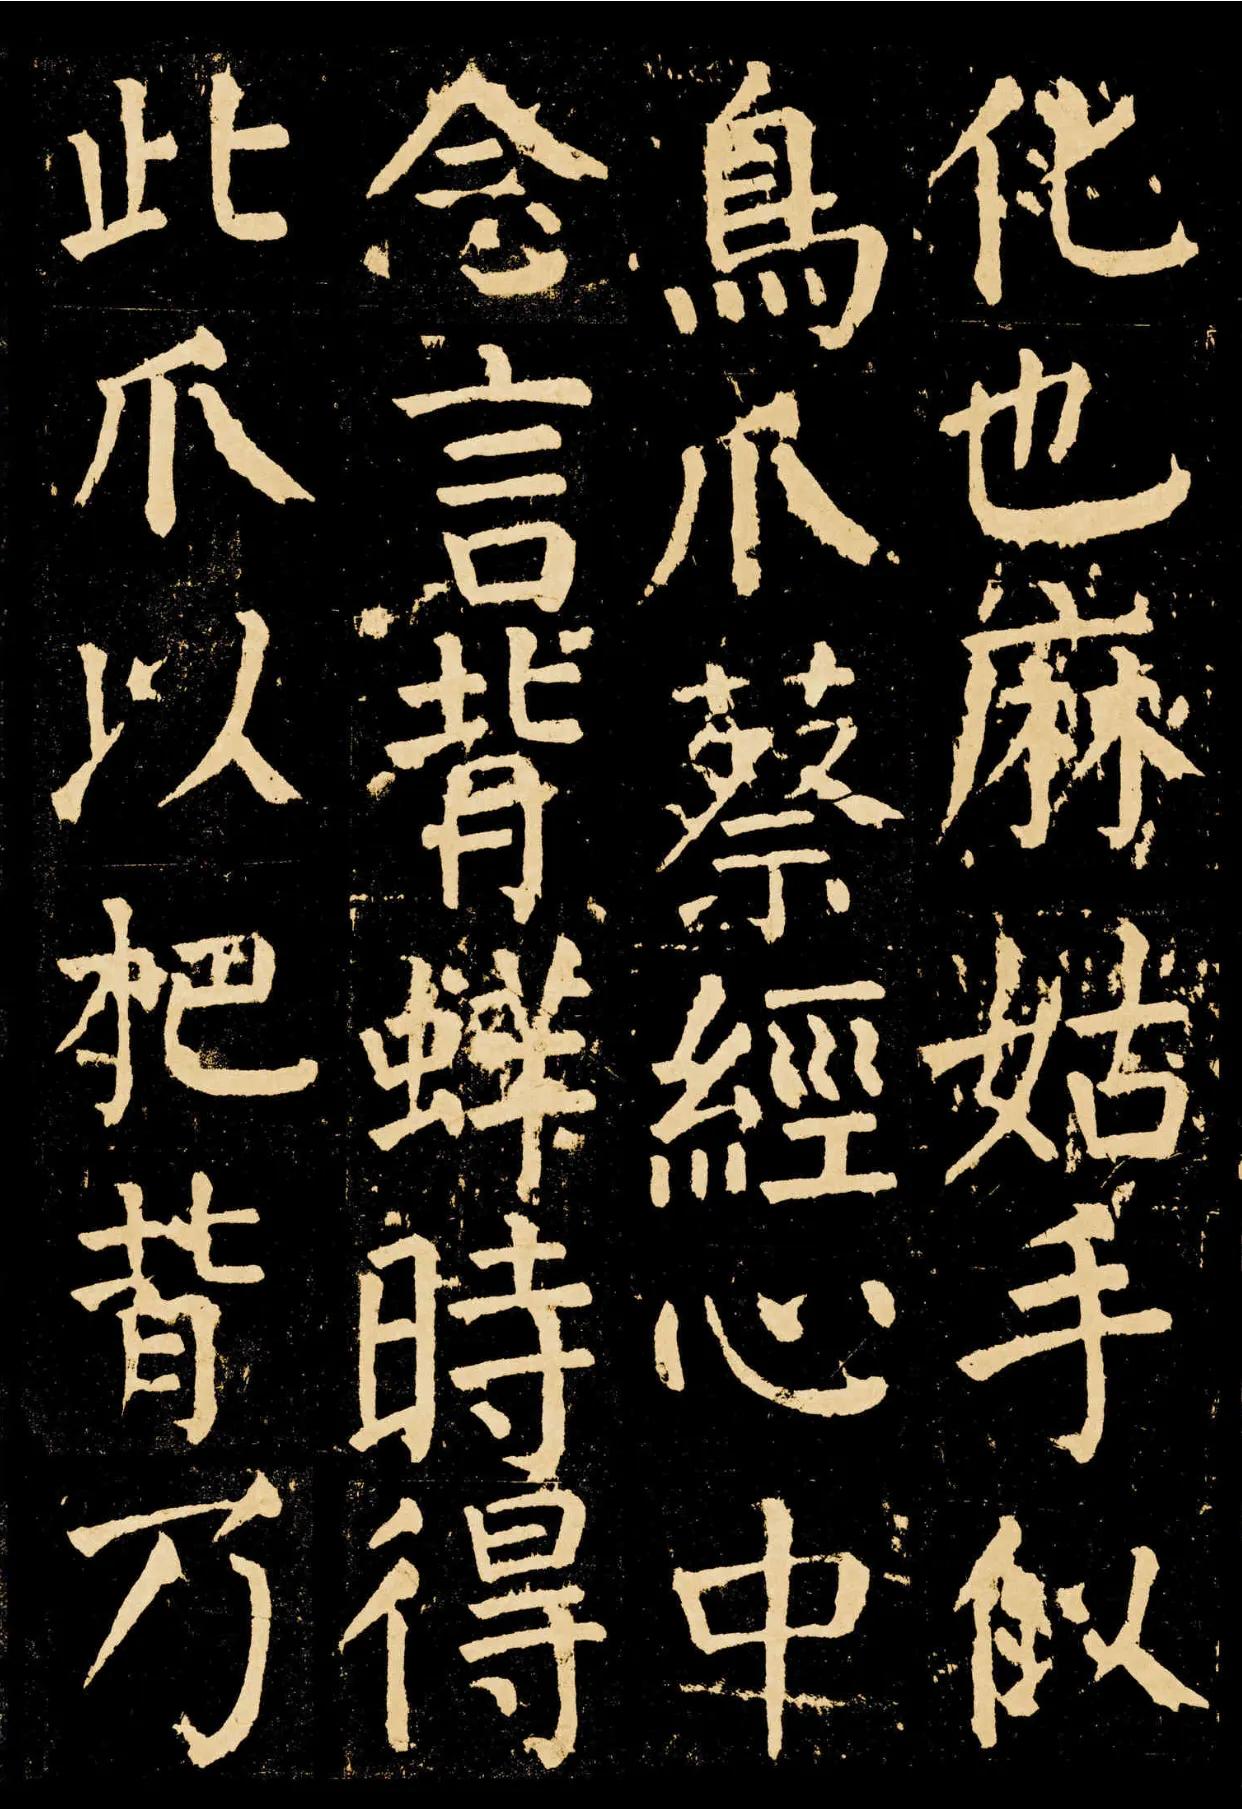 化也麻姑手似
鳥爪蔡經心中
念言背蛘時得
此爪以杷背乃